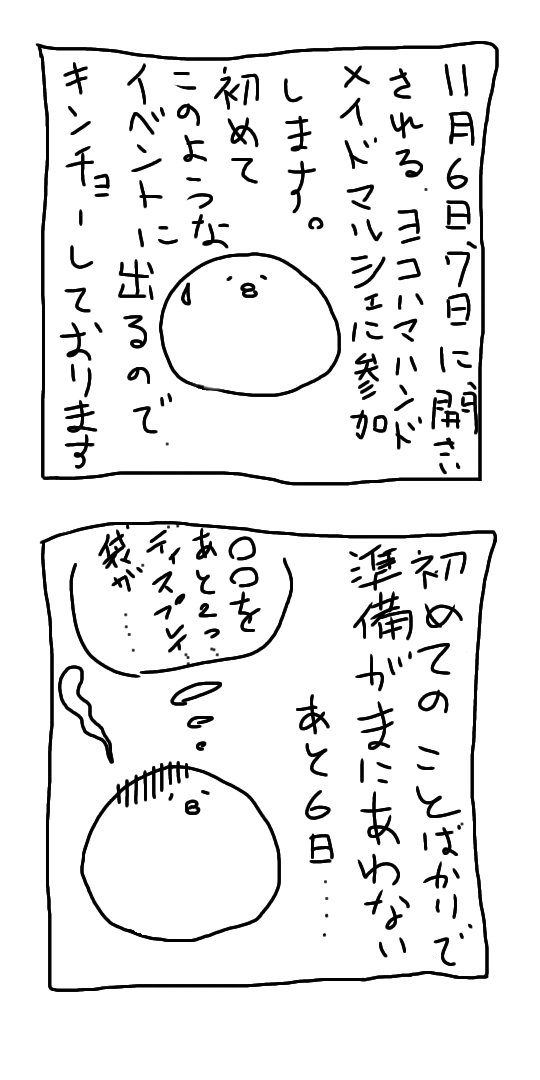 11月6日、7日に、開さい
される ヨコハマハンド
メイドマルシェに参加
します。
初めて
このような
イベントに出るので
キンチョーしております
初めてのことばかりで
準備がまにあわない
あと6日……
〇〇を
あと2つ……
ディスプレイ……
袋が……